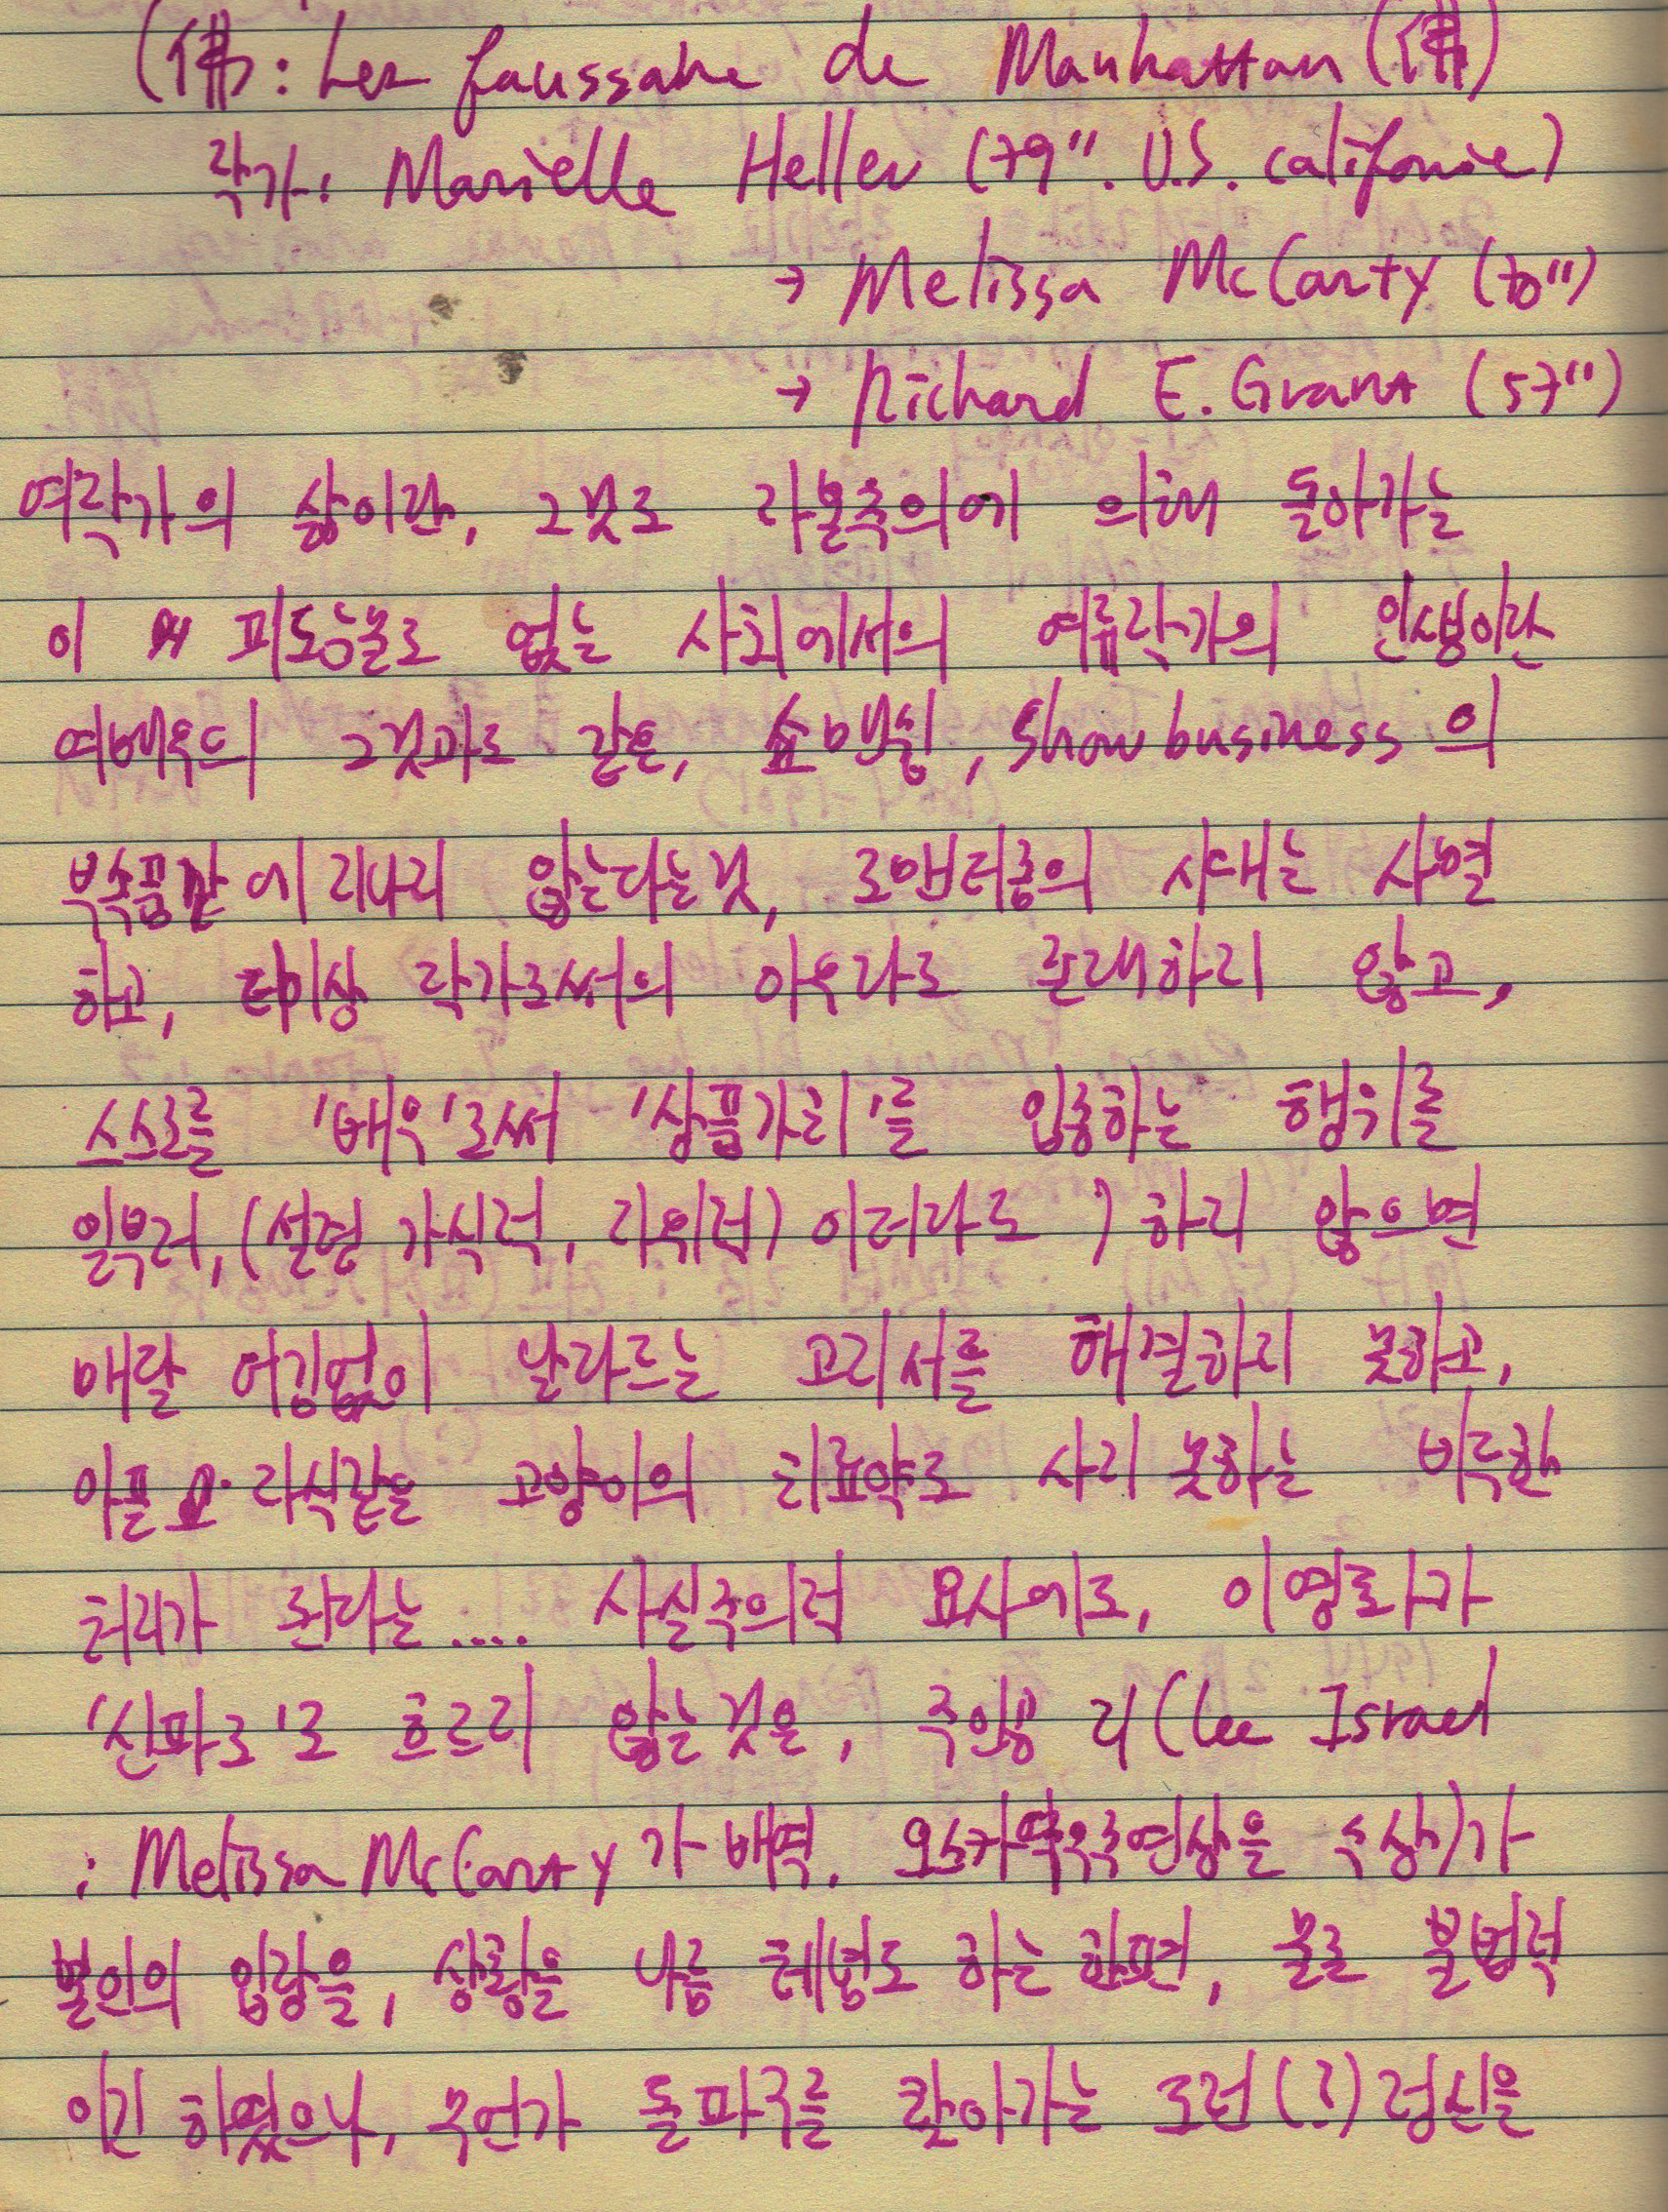 (佛: Les faussaire de Manhattan (佛)
작가: Marielle Heller (79". U.S. califonie)
→ Melissa McCarty (70")
→ Richard E. Grant (57")
여작가의 삶이란, 그것도 자본주의에 의해 돌아가는
이 피도눈물도 없는 사회에서의 여류작가의 인생이란
여배우의 그것과도 같은, 쇼비즈, Show business 의
부속품 에 지나지 않는다는것, 로맨티즘의 시대는 사멸
하고, 더이상 작가로써의 아우라도 존재하지 않고,
스스로를 '배우'로써 '상품가치'를 입증하는 행위를
일부러, (설령 가식적, 작위적) 이더라도 ) 하지 않으면
매달 어김없이 날라드는 고지서를 해결하지 못하고,
아플 자식같은 고양이의 치료약도 사지 못하는 비루한
처지가 된다는 .... 사실주의적 묘사에도, 이영화가
'신파조'로 흐르지 않는것은, 주인공 리 (Lee Israel
: Melissa McCarty 가 배역. 오스카여우주연상을 수상)가
본인의 입장을, 상황을 나름 체념도 하는 한편, 물론 불법적
이긴 하였으나, 무언가 돌파구를 찾아가는 도전(?) 정신을